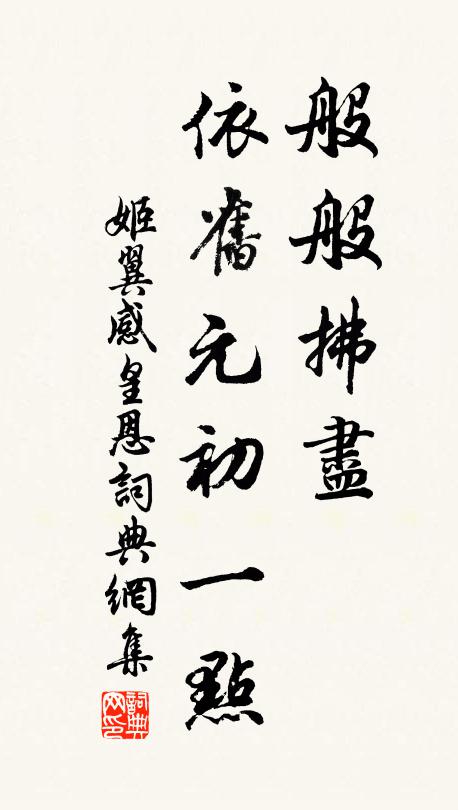 般般拂盡
依舊元初一點
姬翼感皇恩詞典網集
詞典网印